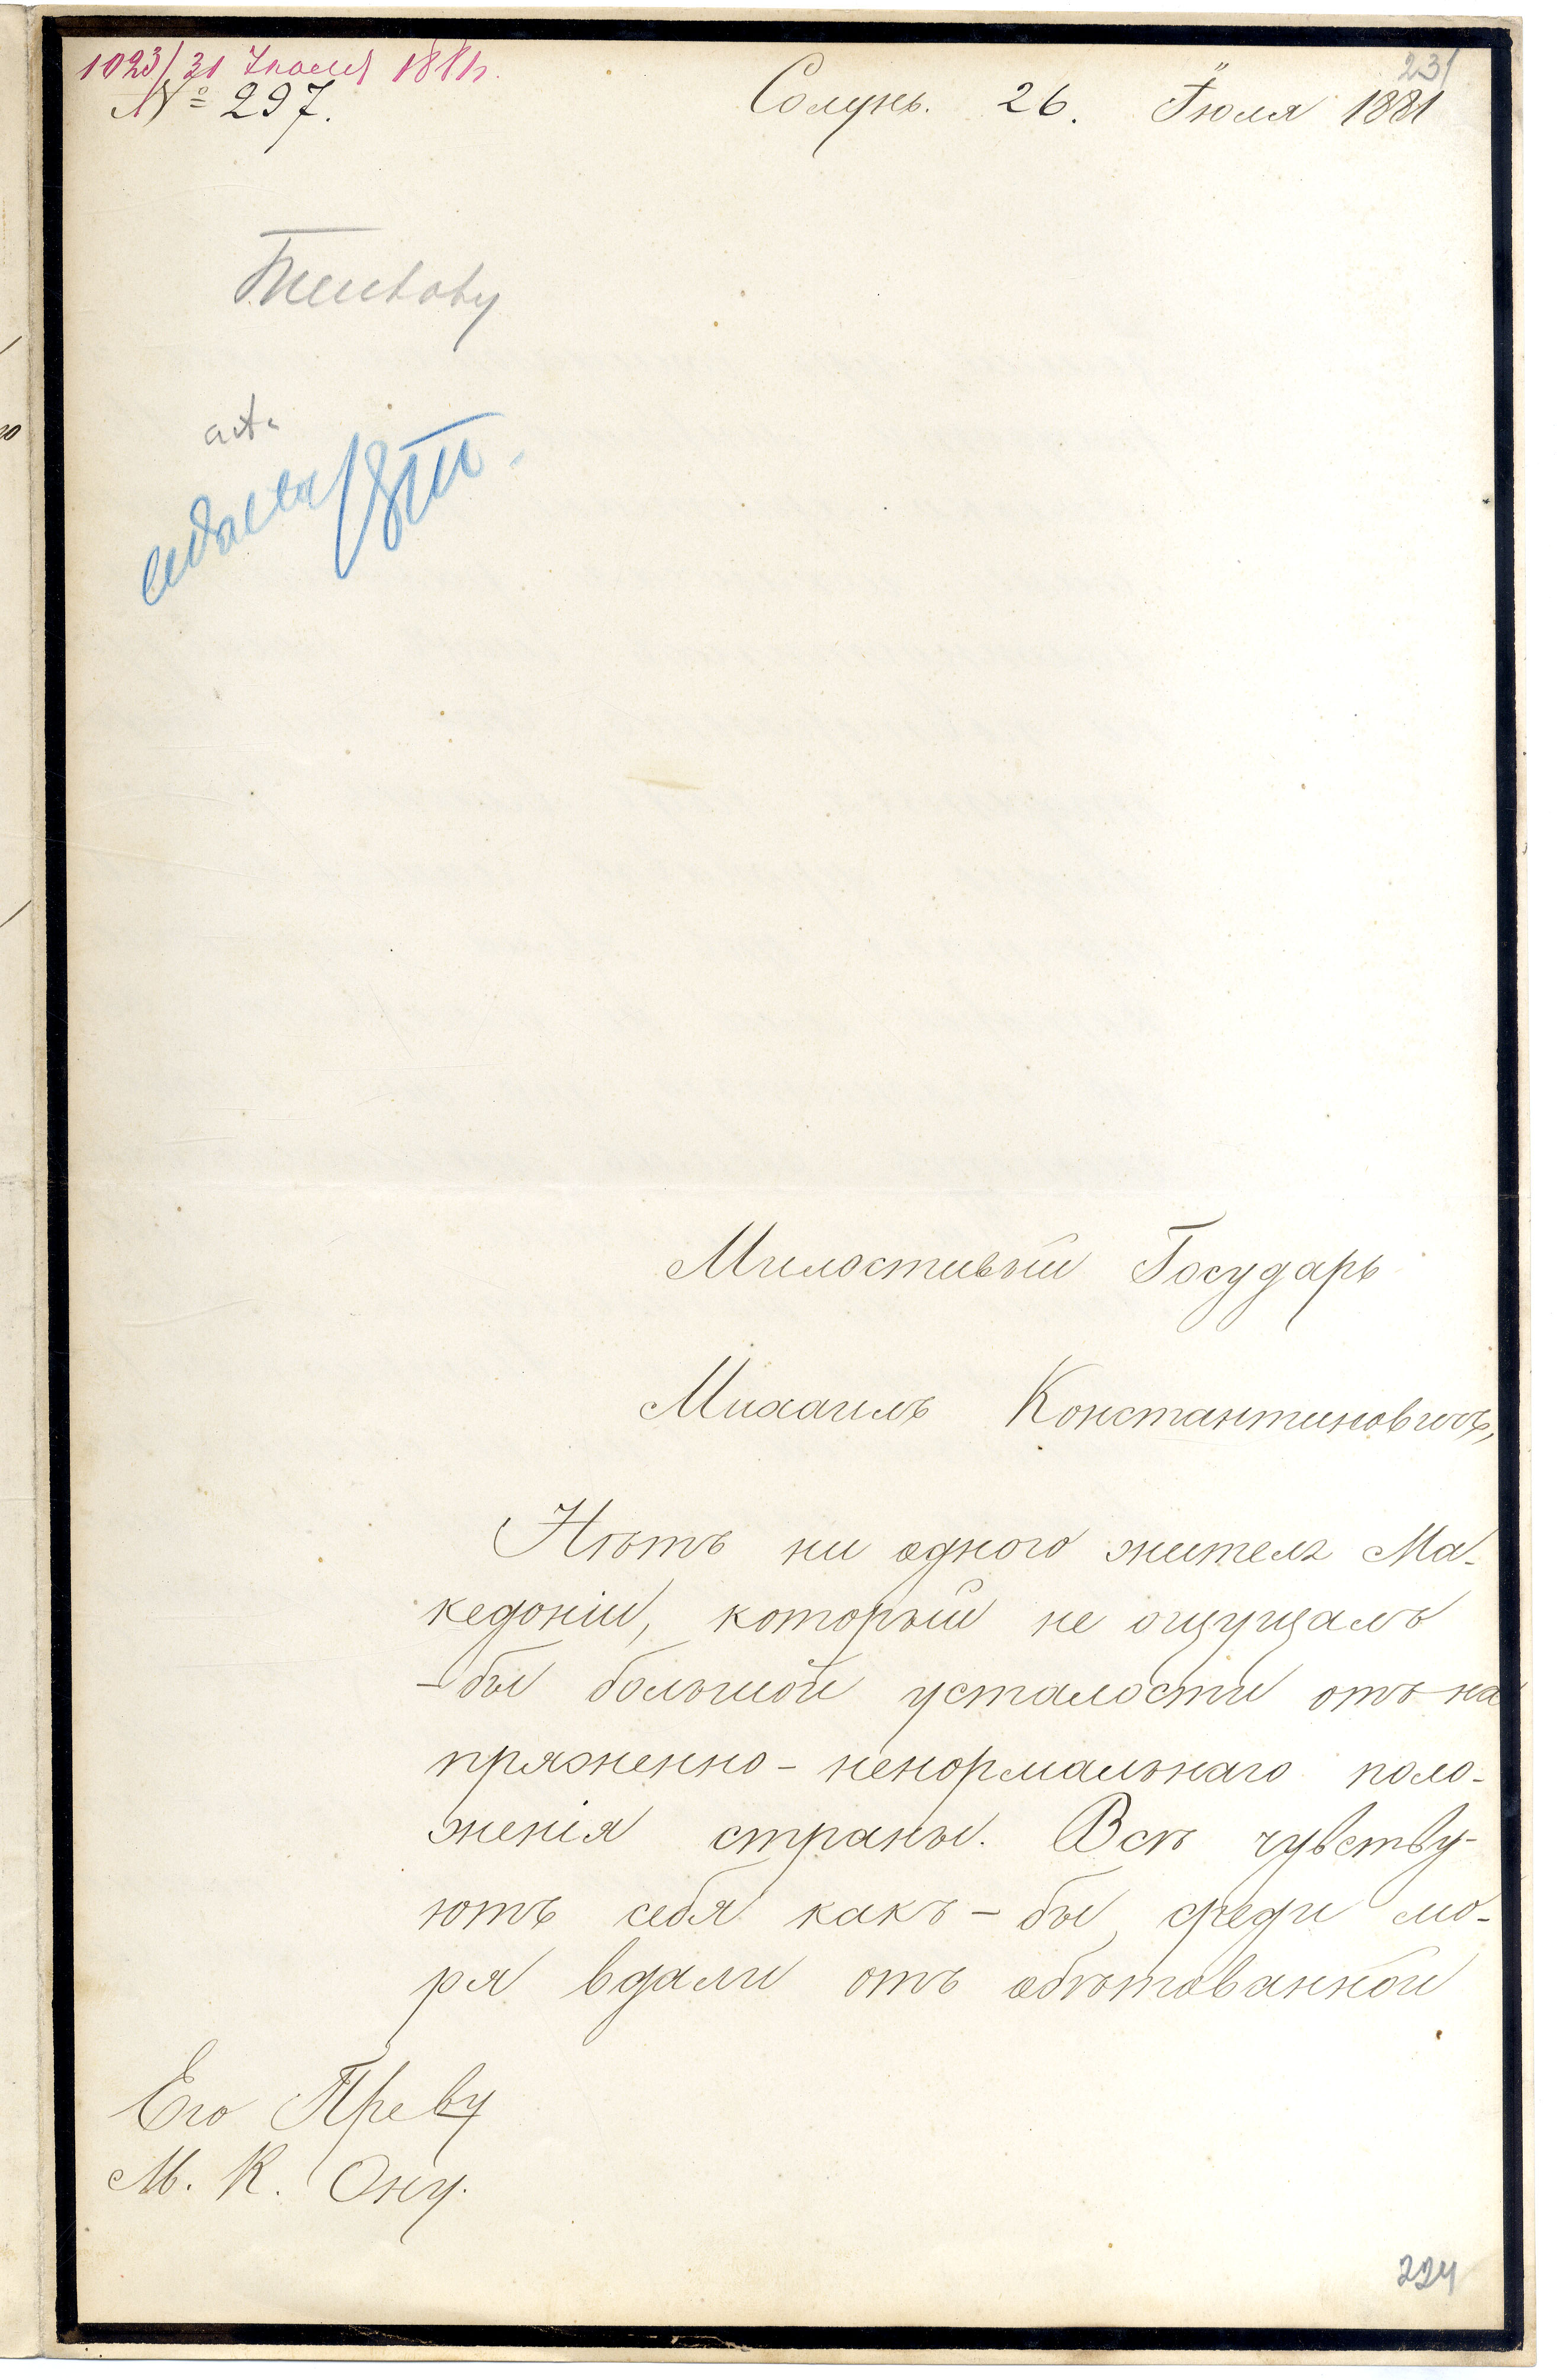 1023/31 Іюля 1881 г.
№ 297.
231
Солунь. 26. Іюля 1881
Милостивый Государь
Михаилъ Константиновичъ,
Нѣтъ ни одного жителя Ма-
кедоніи, который не ощущалъ
-бы большой усталости отъ на
пряженно-ненормальнаго поло-
женія страны. Всѣ чувству-
ютъ себя какъ-бы среди мо-
ря вдали отъ обѣтованной
Его Прев-ву
М. К. Ону.
224